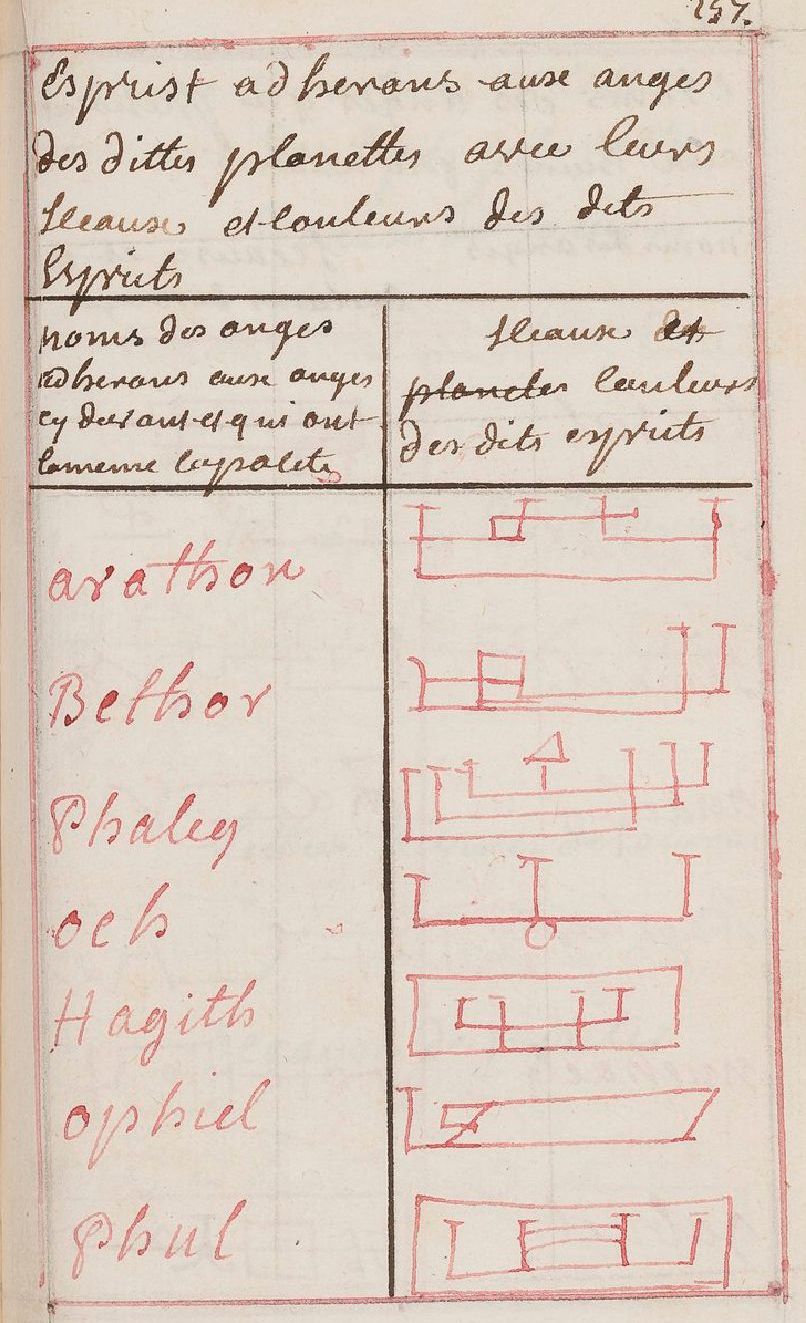 257.
Esprist adherans aux anges
des dittes planettes avec leurs
sceaux et couleurs des dits
Esprits
noms des anges
adherans aux anges
cy devant et qui ont
la meme capacité
sceaux et
planetes couleurs
des dits esprits
arathon
Bethor
Phaleg
och
Hagith
ophiel
Phul